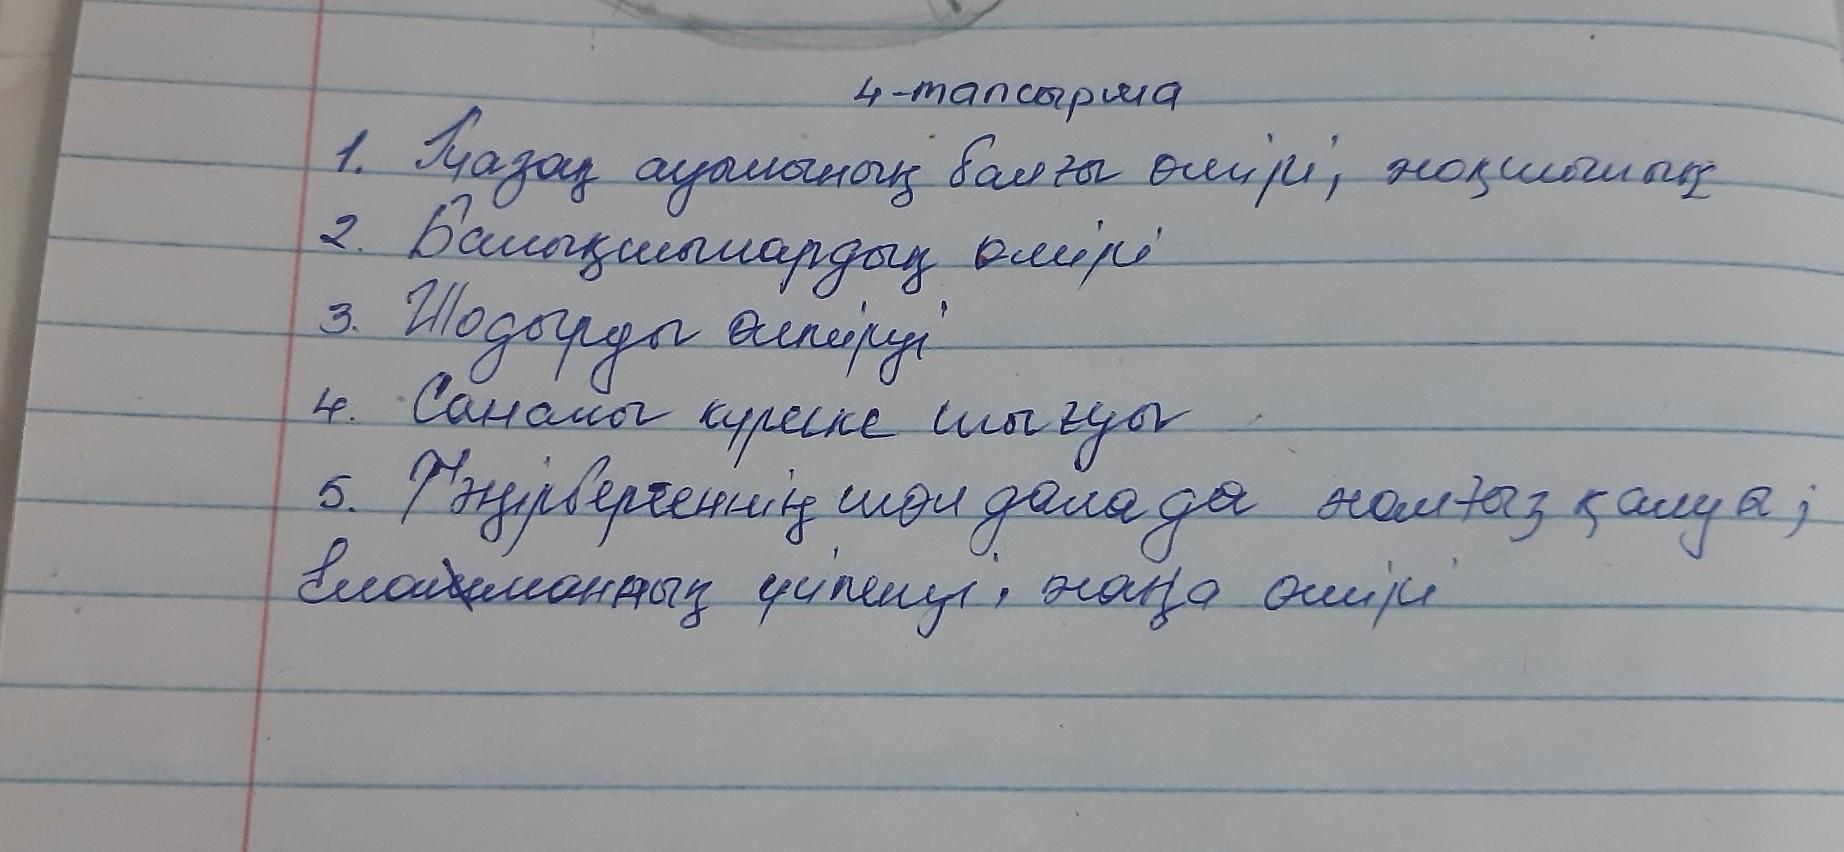 4-тапсырма
1. Қазақ ауылының балғы өмірі, жоқшылық
2. Балықшылардың өмірі
3. Шодырды өлтіруі
4. Саналы күреске шығуы
5. Тәңірбергеннің шөл далада жалғыз қалуы;
Еламанның үйленуі, жаңа өмірі